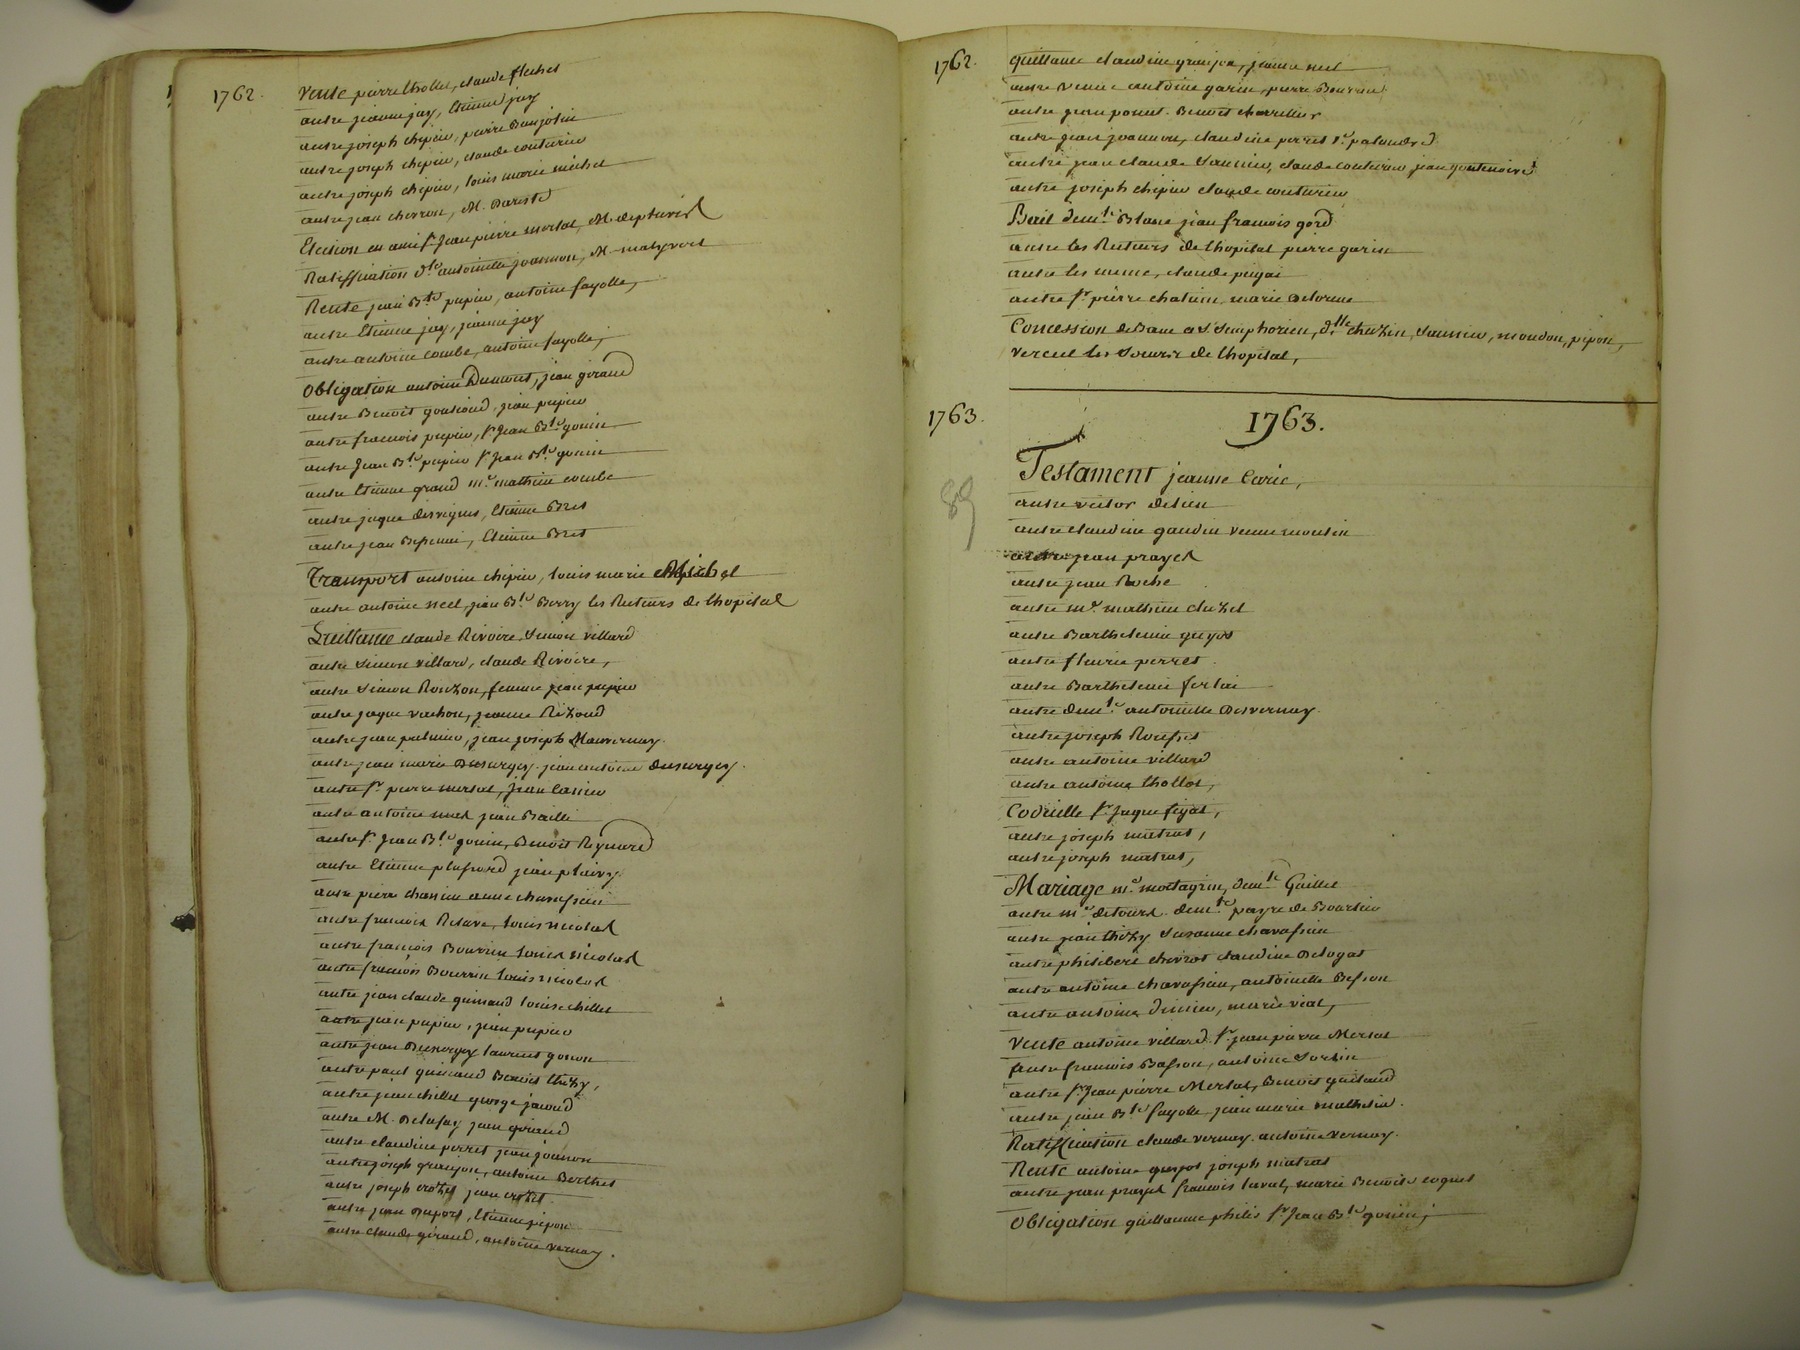 1762.
Vente pierre thollet, claude fleches
autre jeanne jay, Etienne jay
autre joseph chipier, pierre Bonjolin
autre joseph chipier, claude couturier
autre joseph chipier, louis marie michel
autre jean chevron, M. Dareste
Election en ami sr jean pierre merlat, M.
Ratiffication dlle antoinette joannon, M.
Rente jean Bte pupier, antoine fayolle,
autre Etienne jay, jeanne jay
autre antoine combe, antoine fayolle,
Obligation antoine Dumont, jean giraud
autre Benoit goutioud, jean pupier
autre francois pupier, sr Jean Bte gonin
autre Jean Bte pupier sr Jean Bte gonin
autre Etienne giraud me mathieu combe
autre jaque desvignes, Etienne Bret
autre jean Bessenai, Etienne Bret
Transport antoine chipier, louis marie Michel
autre antoine neel, jean Bte Berry les Recteurs de lhopital
Quittance claude Rivoire Simon villard
autre Simon villard, claude Rivoire,
autre Simon Ronzon, femme jean pupier
autre jaque vachon, jeanne
autre jean pulmier, jean joseph Mauvernay.
autre jean marie Dusurgey. jean antoine dusurgey.
autre sr pierre merlat, jean Canier
autre antoine jean Baille
autre sr Jean Bte gonin, Benoit Reynard
autre Etienne plassard jean
autre pierre anne chavassieu
autre francois louis nicolas
autre françois Bourrin louis nicolas
autre françois Bourrin louis nicolas
autre jean claude guinand louise chillet
autre jean pupier, jean pupier
autre jean Dusurgey laurent gonon
autre paul guinand Benoit thizy,
autre jean chillet george jacoud
autre M. Delafay jean giraud
autre claudine perret jean joanon
autre joseph granjon, antoine Berthet
autre joseph crozet jean crozet
autre jean Duport, Etienne pipon
autre claude giraud, antoine vernay.
1762.
quittance claudine granjon, jeanne neel
autre antoine garin, pierre Bourrin
autre jean ponet. Benoit
autre jean joannon, claudine perret
autre jean claude Saunier, claude couturier jean gontenoire
autre joseph chipier claude couturier
Bail demlle Blanc jean francois gord
autre les Recteurs de lhopital pierre garin
autre les meme, claude
autre sr pierre chatain, marie Delorme
Concession de Banc a St Simphorien, dlle Saunier, moudon, pipon,
les soeurs de lhopital,
1763.
1763.
89
Testament jeanne
autre victor
autre claudine gaudin
autre jean prayet
autre jean Roche
autre me mathieu cluzel
autre Barthelemie guyot
autre fleurie perret.
autre Barthelemi
autre demlle antoinette Desvernay.
autre joseph
autre antoine villard
autre antoine thollot,
Codicille sr Jaque figat,
autre joseph matrat,
autre joseph matrat,
Mariage me demlle Guillet
autre me demlle payre de Boursier
autre jean thizy Suzanne chavassieu
autre philibert chevrot claudine
autre antoine chavassieu, antoinette Besson
autre antoine marie vial,
Vente antoine villard. sr jean pierre Merlat
autre francois Basson, antoine
autre sr Jean pierre Merlat, Benoit guitaud
autre jean Bte fayolle jean marie mathelin.
Ratiffication claude vernay. antoine vernay.
Rente antoine guyot joseph matrat
autre jean prayet francois laval, marie Benoite
Obligation guillaume philis sr Jean Bte gonin,